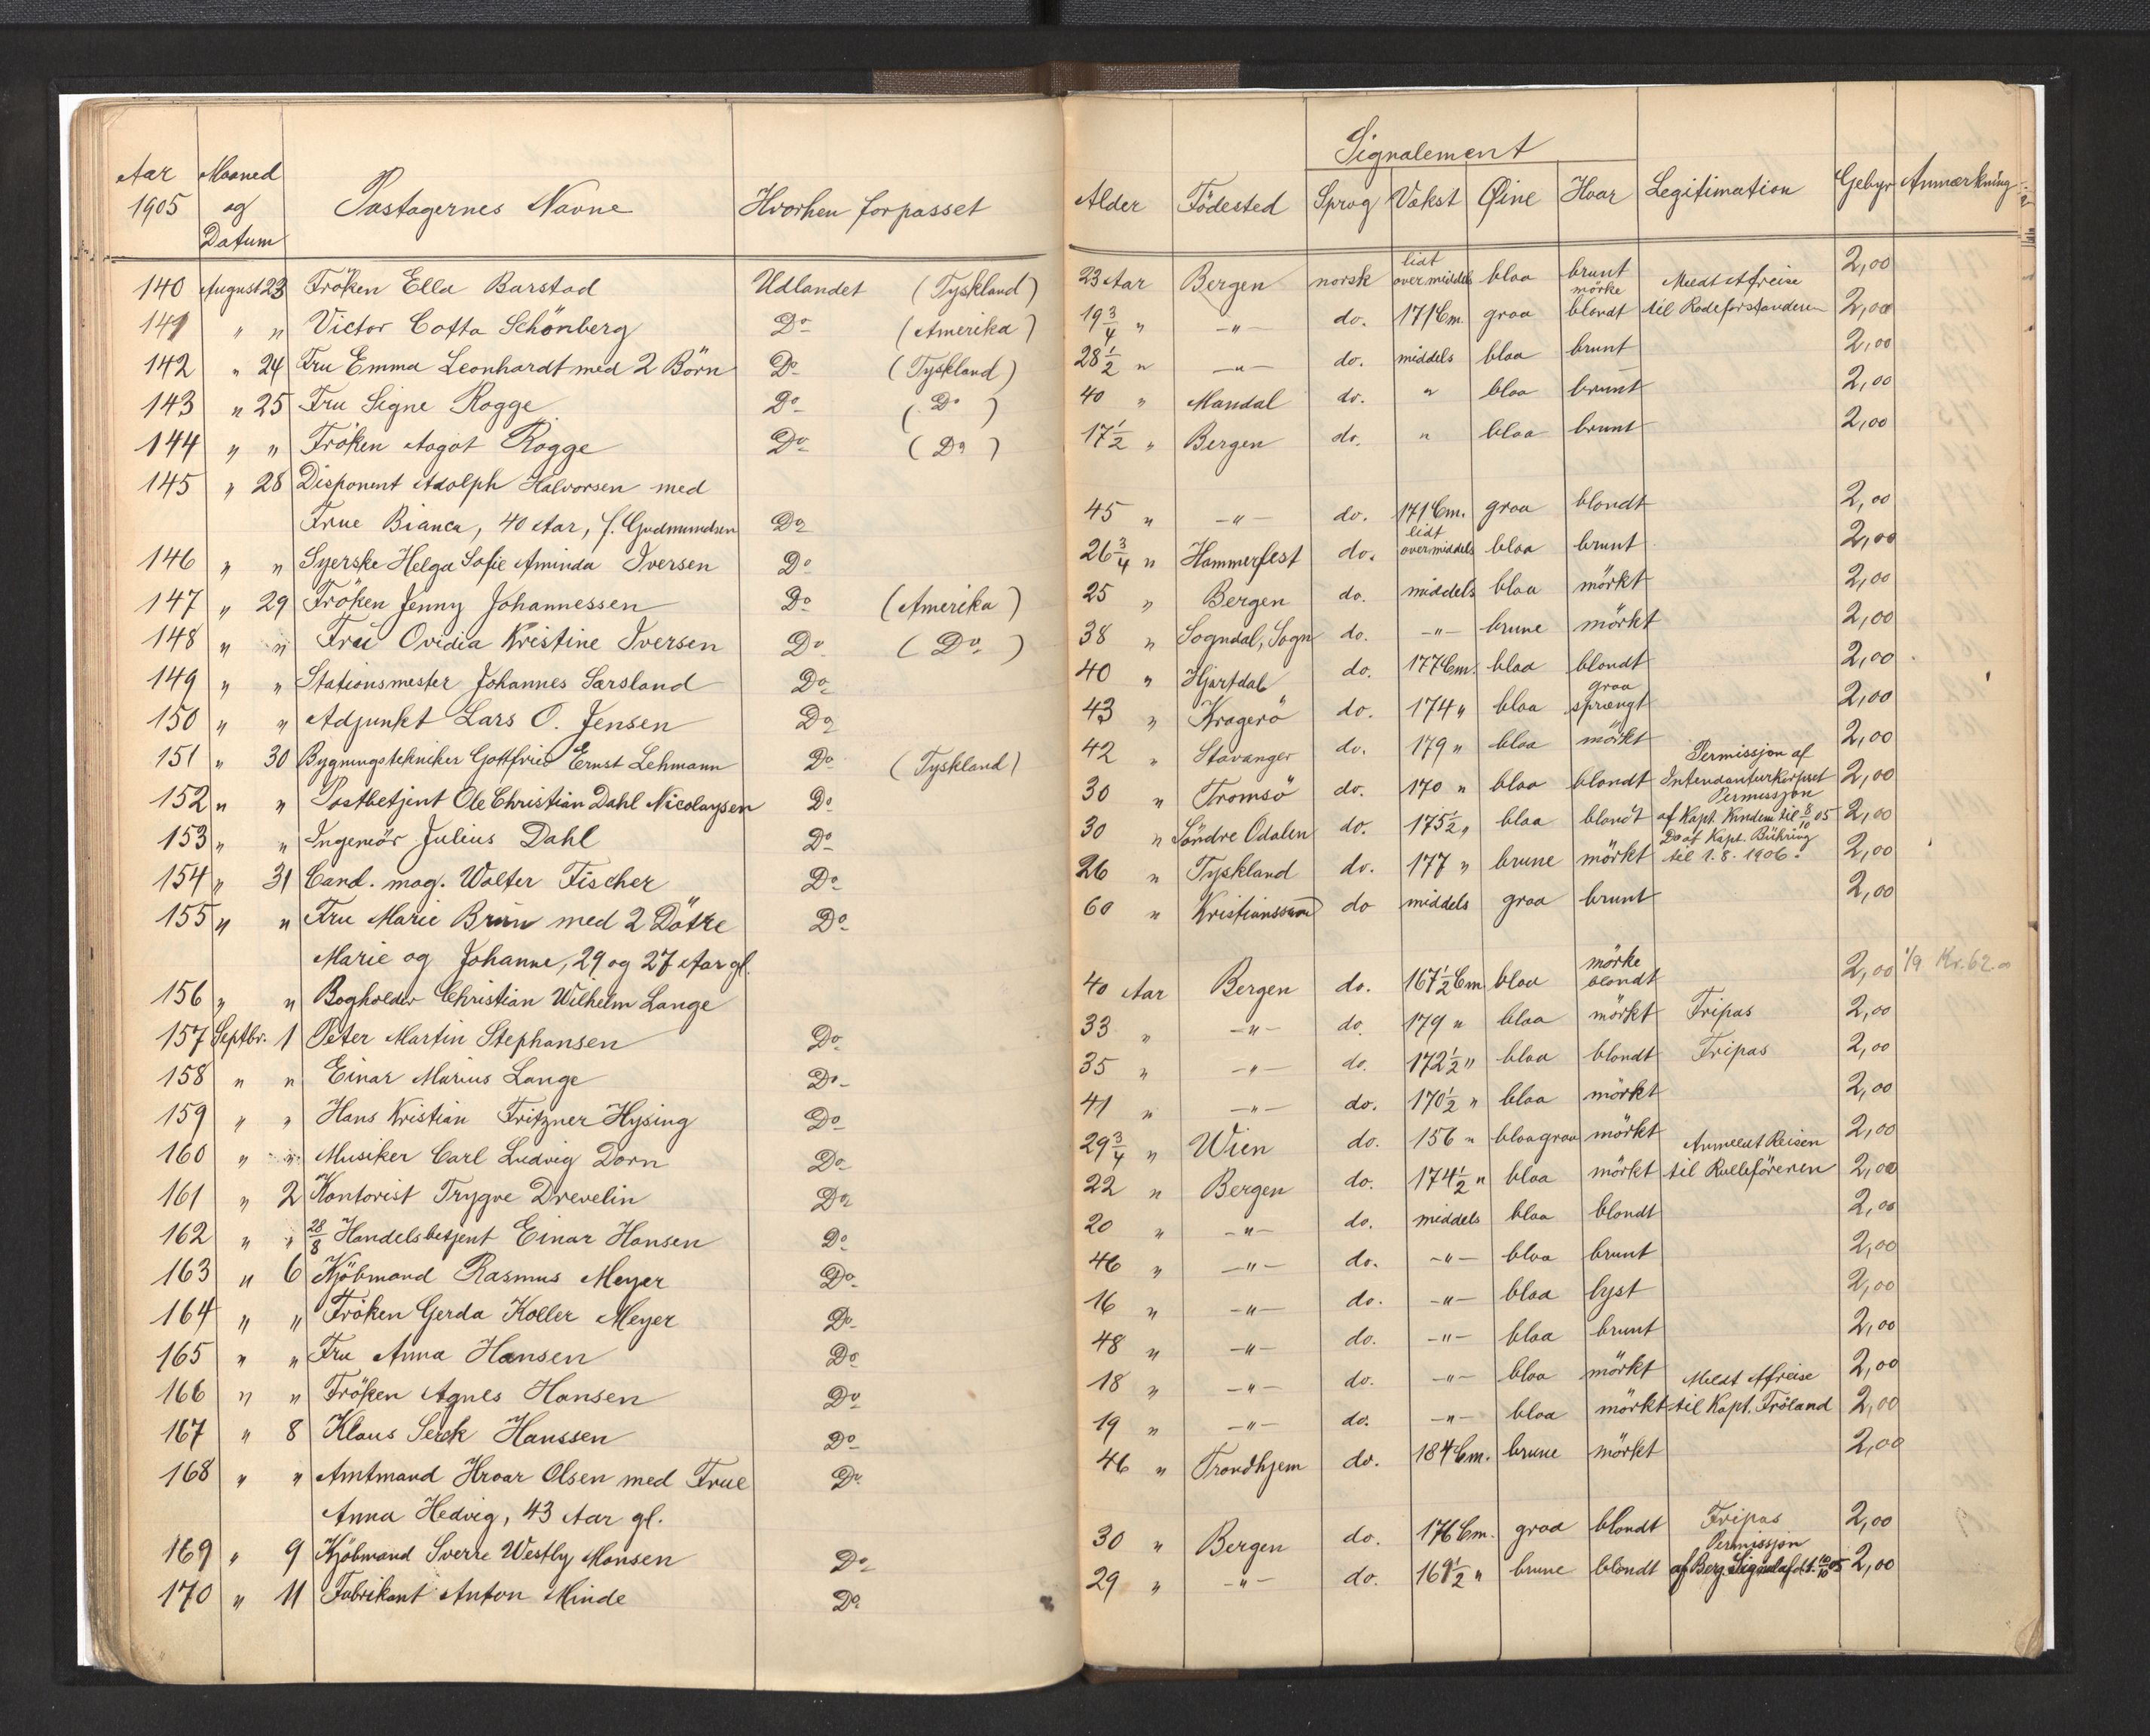 Aar 1905 Maaned og Datum Pastagernes Navne Hvorhen forpasset
140 August 23 Fröken Ella Barstad Udlandet (Tyskland)
141 " " Victor Cotta Schönberg Do (Amerika)
142 " 24 Fru Emma Leonhardt med 2 Börn Do (Tyskland)
143 " 25 Fru Signe Rogge Do (Do)
144 " " Fröken Aagot Rogge Do (Do)
145 " 28 Disponent Adolph Halvorsen med
Frue Bianca, 40 Aar, f. Gudmundsen Do
146 " " Syerske Helga Sofie Aminda Iversen Do
147 " 29 Fröken Jenny Johannessen Do (Amerika)
148 " " Fru Ovidia Kristine Iversen Do (Do)
149 " " Stationsmester Johannes Sarsland Do
150 " " Adjunkt Lars O. Jensen Do
151 " 30 Bygningstekniker Gottfried Ernst Lehmann Do (Tyskland)
152 " " Postbetjent Ole Christian Dahl Nicolaysen Do
153 " " Ingeniör Julius Dahl Do
154 " 31 Cand. mag. Walter Fischer Do
155 " " Fru Marie Brun med 2 Dötre Do
Marie og Johanne, 29 og 27 Aar gl.
156 " " Bogholder Christian Wilhelm Lange
157 Septbr. 1 Peter Martin Stephansen Do
158 " " Einar Marius Lange Do
159 " " Hans Kristian Fritzner Hysing Do
160 " " Musiker Carl Ludvig Dorn Do
161 " 2 Kontorist Trygve Drevelin Do
162 " " 28/8 Handelsbetjent Einar Hansen Do
163 " 6 Kjöbmand Rasmus Meyer Do
164 " " Fröken Gerda Koller Meyer Do
165 " " Fru Anna Hansen Do
166 " " Fröken Agnes Hansen Do
167 " 8 Klaus Serck Hanssen Do
168 " " Amtmand Hroar Olsen med Frue Do
Anna Hedvig, 43 Aar gl.
169 " 9 Kjöbmand Sverre Westby Monsen Do
170 " 11 Fabrikant Anton Minde Do
Signalement
Alder Födested Sprog Vækst Øine Haar Legitimation Gebyr Anmærkning
23 Aar Bergen norsk lidt over middels blaa brunt 2,00
19 3/4 " -"- do. 171 Cm. graa mörke blondt Meldt Afreise til Rodeforstanderen 2,00
28 1/2 " -"- do. middels blaa brunt 2,00
40 " Mandal do. " blaa brunt 2,00
17 1/2 " Bergen do. " blaa brunt 2,00
45 " -"- do. 171 Cm. graa blondt 2,00
26 3/4 " Hammerfest do. lidt over middels blaa brunt 2,00
25 " Bergen do. middels blaa mörkt 2,00
38 " Sogndal, Sogn do. -"- brune mörkt 2,00
40 " Hjartdal do. 177 Cm. blaa blondt 2,00
43 " Kragerö do. 174 " blaa graa sprængt 2,00
42 " Stavanger do. 179 " blaa mörkt 2,00
30 " Tromsö do. 170 " blaa blondt Permissjon af Intendanturkorpset 2,00
30 " Söndre Odalen do. 175 1/2 " blaa blondt Permissjon af Kapt. Kindem til 8/10 05 2,00
26 " Tyskland do. 177 " brune mörkt Do af Kapt. Bühring til 1.8.1906. 2,00
60 " Kristianssund do middels graa brunt 2,00
40 Aar Bergen do. 167 1/2 Cm blaa mörke blondt 2,00 1/9 Kr. 62.00
33 " -"- do. 179 " blaa mörkt Fripas 2,00
35 " -"- do. 172 1/2 " blaa blondt Fripas 2,00
41 " -"- do. 170 1/2 " blaa mörkt 2,00
29 3/4 " Wien do. 156 " blaagraa mörkt 2,00
22 " Bergen do. 174 1/2 " blaa mörkt Anmeldt Reisen til Rulleföreren 2,00
20 " -"- do. middels blaa blondt 2,00
46 " -"- do. -"- blaa brunt 2,00
16 " -"- do. -"- blaa lyst 2,00
48 " -"- do. -"- blaa brunt 2,00
18 " -"- do. -"- blaa mörkt 2,00
19 " -"- do. -"- blaa mörkt Meldt Afreise til Kapt. Fröland 2,00
46 " Trondhjem do. 184 Cm. brune mörkt 2,00
30 " Bergen do. 176 Cm. graa blondt Fripas 2,00
29 " -"- do. 169 1/2 " brune blondt Permissjon af Berg. 10/10 05 2,00